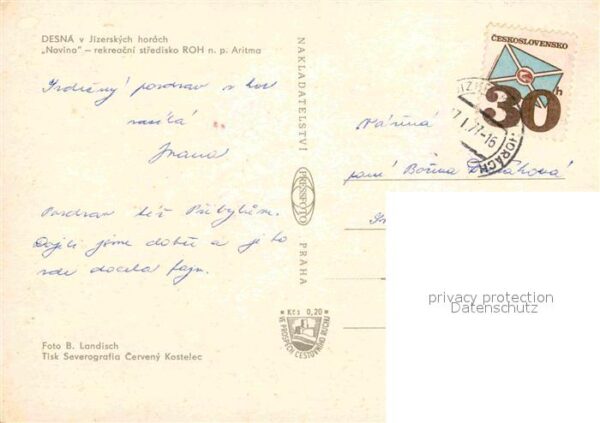 DESNÁ v Jizerských horách
„Novina" – rekreační středisko ROH n. p. Aritma
Srdečný pozdrav z hor
zasílá
Ivana
Pozdrav též Přibylům.
Dojeli jsme dobře a je to
zde docela fajn.
Foto B. Landisch
Tisk Severografia Červený Kostelec
NAKLADATELSTVÍ
PRESSFOTO
PRAHA
Kčs 0,20
VE PROSPĚCH CESTOVNÍHO RUCHU
ČESKOSLOVENSKO
30h
7.1.77-16
HORÁCH
Vážená
paní Božena
privacy protection
Datenschutz